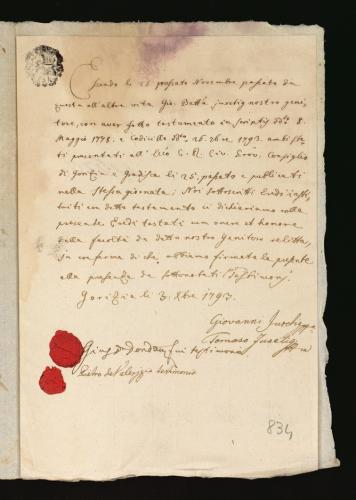 Essendo li 25 passato Novembre passato da
questa all'altra vita Gio. Batta nostro geni=
tore, con aver fatto testamento in scriptis dd.º 8.
Maggio 1778, e Codicillo dto. 26. 1793. ambi sta=
ti presentati all' C. R. Civ. Prov. Consiglio
di Gorizia e Gradisca li 25. passato e publicati
nella stessa giornata; Noi sottoscritti Eredi insti=
tuiti in detto testamento ci dichiariamo colla
presente Eredi testati cum onere et honore
della facoltà da detto nostro Genitore relitta,
In conferma di che, abbiamo firmata la presente
alla presenza de sottonotati Testimonj.
Gorizia li 3. Xbre 1793.
Giovanni
Tomaso
fui testimonio
Pietro de testimonio
834